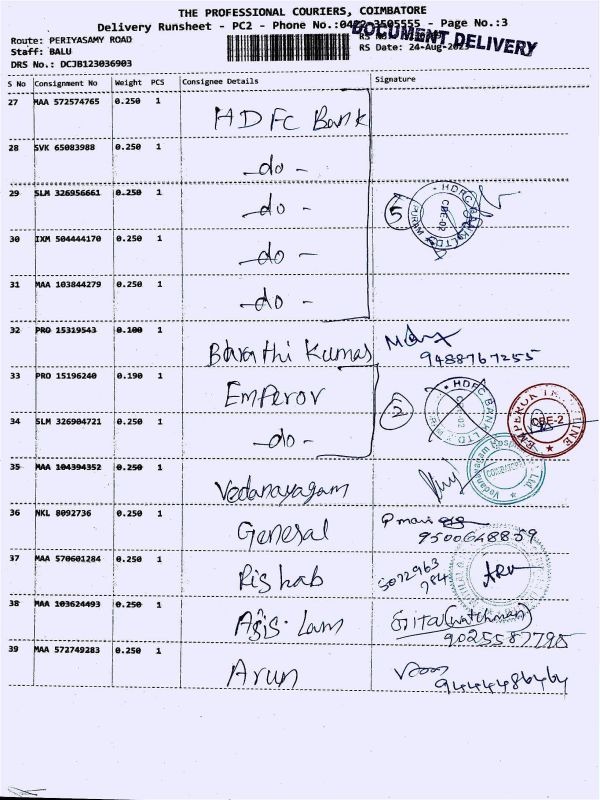 THE PROFESSIONAL COURIERS, COIMBATORE
Delivery Runsheet - PC2 - Phone No.:0422-3505555 - Page No.:3
Route: PERIYASAMY ROAD
Staff: BALU
RS Date: 24-Aug-2023
DOCUMENT DELIVERY
DRS No.: DCJB123036903
S No Consignment No Weight PCS Consignee Details Signature
27 MAA 572574765 0.250 1 HDFC Bank
28 SVK 65083988 0.250 1 -do-
29 SLM 326956661 0.250 1 -do- 5
30 IXM 504444170 0.250 1 -do-
31 MAA 103844279 0.250 1 -do-
32 PRO 15319543 0.100 1 Bharathi Kumar 9488767255
33 PRO 15196240 0.190 1 Emperor
34 SLM 326904721 0.250 1 -do- 2
HDFC BANK LTD
CBE-02
HDFC BANK LTD
CBE-2
35 MAA 104394352 0.250 1 Vedanayagam
36 NKL 8092736 0.250 1 General 9500648859
37 MAA 570601284 0.250 1 Rishab
38 MAA 103624493 0.250 1 (watchman) 9025587795
39 MAA 572749283 0.250 1 Arun